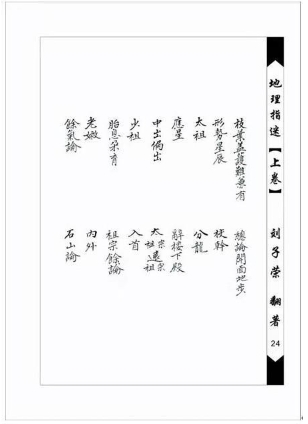 地理指迷【上卷】
刘子荣 翻著
24
枝葉蓋護難兼有 總論開面地步
形勢星辰 枝幹
太祖 分龍
應星 辭樓下殿
中出偏出 太祖宗遠宗祖
少祖 入首
胎息孕育 祖宗餘論
老嫩 內外
餘氣論 石山論